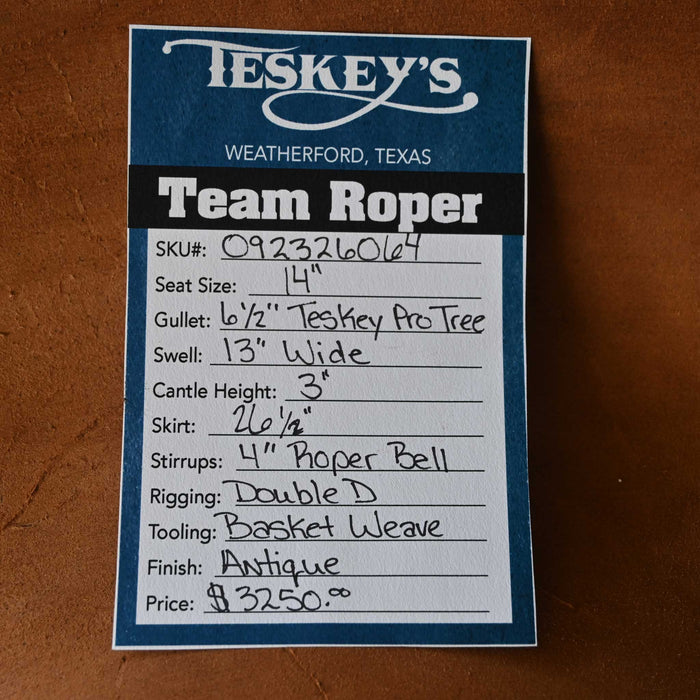 TESKEY'S
WEATHERFORD, TEXAS
Team Roper
SKU#: 092326064
Seat Size: 14"
Gullet: 6 1/2" Teskey Pro Tree
Swell: 13" Wide
Cantle Height: 3"
Skirt: 26 1/2"
Stirrups: 4" Roper Bell
Rigging: Double D
Tooling: Basket Weave
Finish: Antique
Price: $3250.00